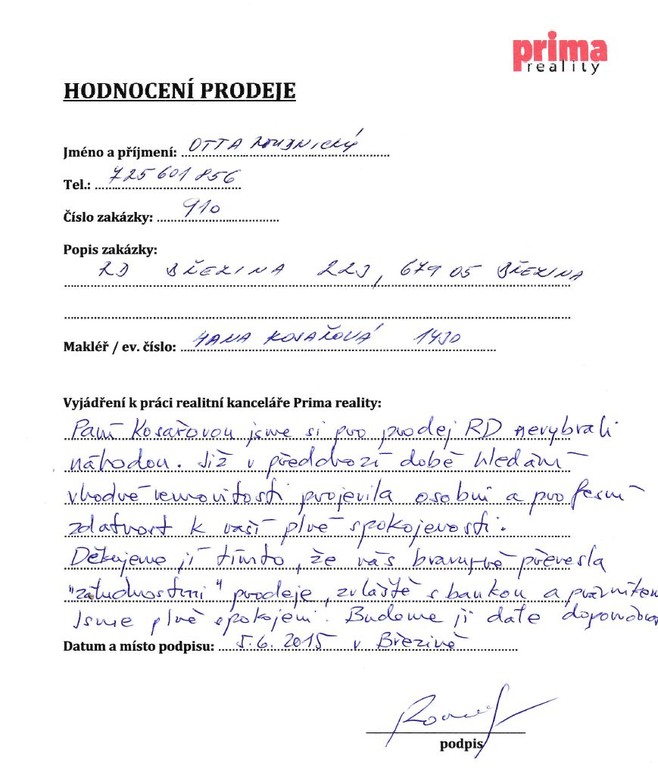 prima
reality
HODNOCENÍ PRODEJE
Jméno a příjmení: OTTA
Tel.: 725 601 856
Číslo zakázky: 910
Popis zakázky:
RD BŘEZINA 223, 679 05 BŘEZINA
Makléř / ev. číslo: HANA KOSAŘOVÁ 1430
Vyjádření k práci realitní kanceláře Prima reality:
Paní Kosařovou jsme si pro prodej RD nevybrali
náhodou. Již v předchozí době hledání
vhodné nemovitosti projevila osobní a profesní
zdatnost k naší plné spokojenosti.
Děkujeme jí tímto, že nás bravurně převesla
"záludnostmi" prodeje, zvláště s bankou a právníkem
Jsme plně spokojeni. Budeme ji dále doporučovat
Datum a místo podpisu: 5.6.2015 v Březině
podpis